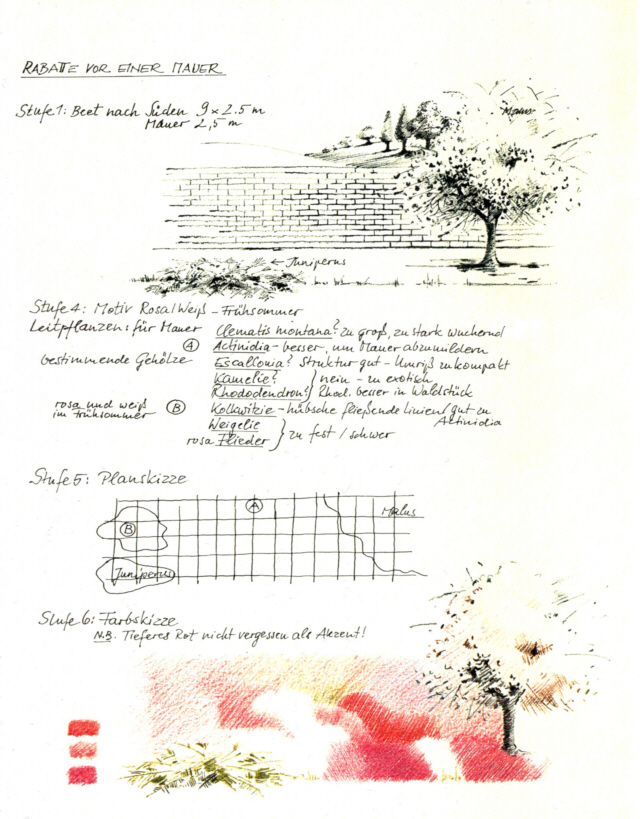 RABATTE VOR EINER MAUER
Stufe 1: Beet nach Süden 9 x 2.5 m
Mauer 2,5 m
Malus
← Juniperus
Stufe 4: Motiv Rosa/Weiß - Frühsommer
Leitpflanzen: für Mauer Clematis montana? zu groß, zu stark wuchernd
Ⓐ Actinidia - besser, um Mauer abzumildern
bestimmende Gehölze Escallonia? Struktur gut - Umriß zu kompakt
Kamelie? } nein - zu exotisch
Rhododendron? } Rhod. besser in Waldstück
rosa und weiß im Frühsommer Ⓑ Kolkwitzie - hübsche fließende Linien/gut zu Actinidia
Weigelie } zu fest / schwer
rosa Flieder
Stufe 5: Planskizze
Ⓐ
Malus
Ⓑ
Juniperus
Stufe 6: Farbskizze
N.B. Tieferes Rot nicht vergessen als Akzent!